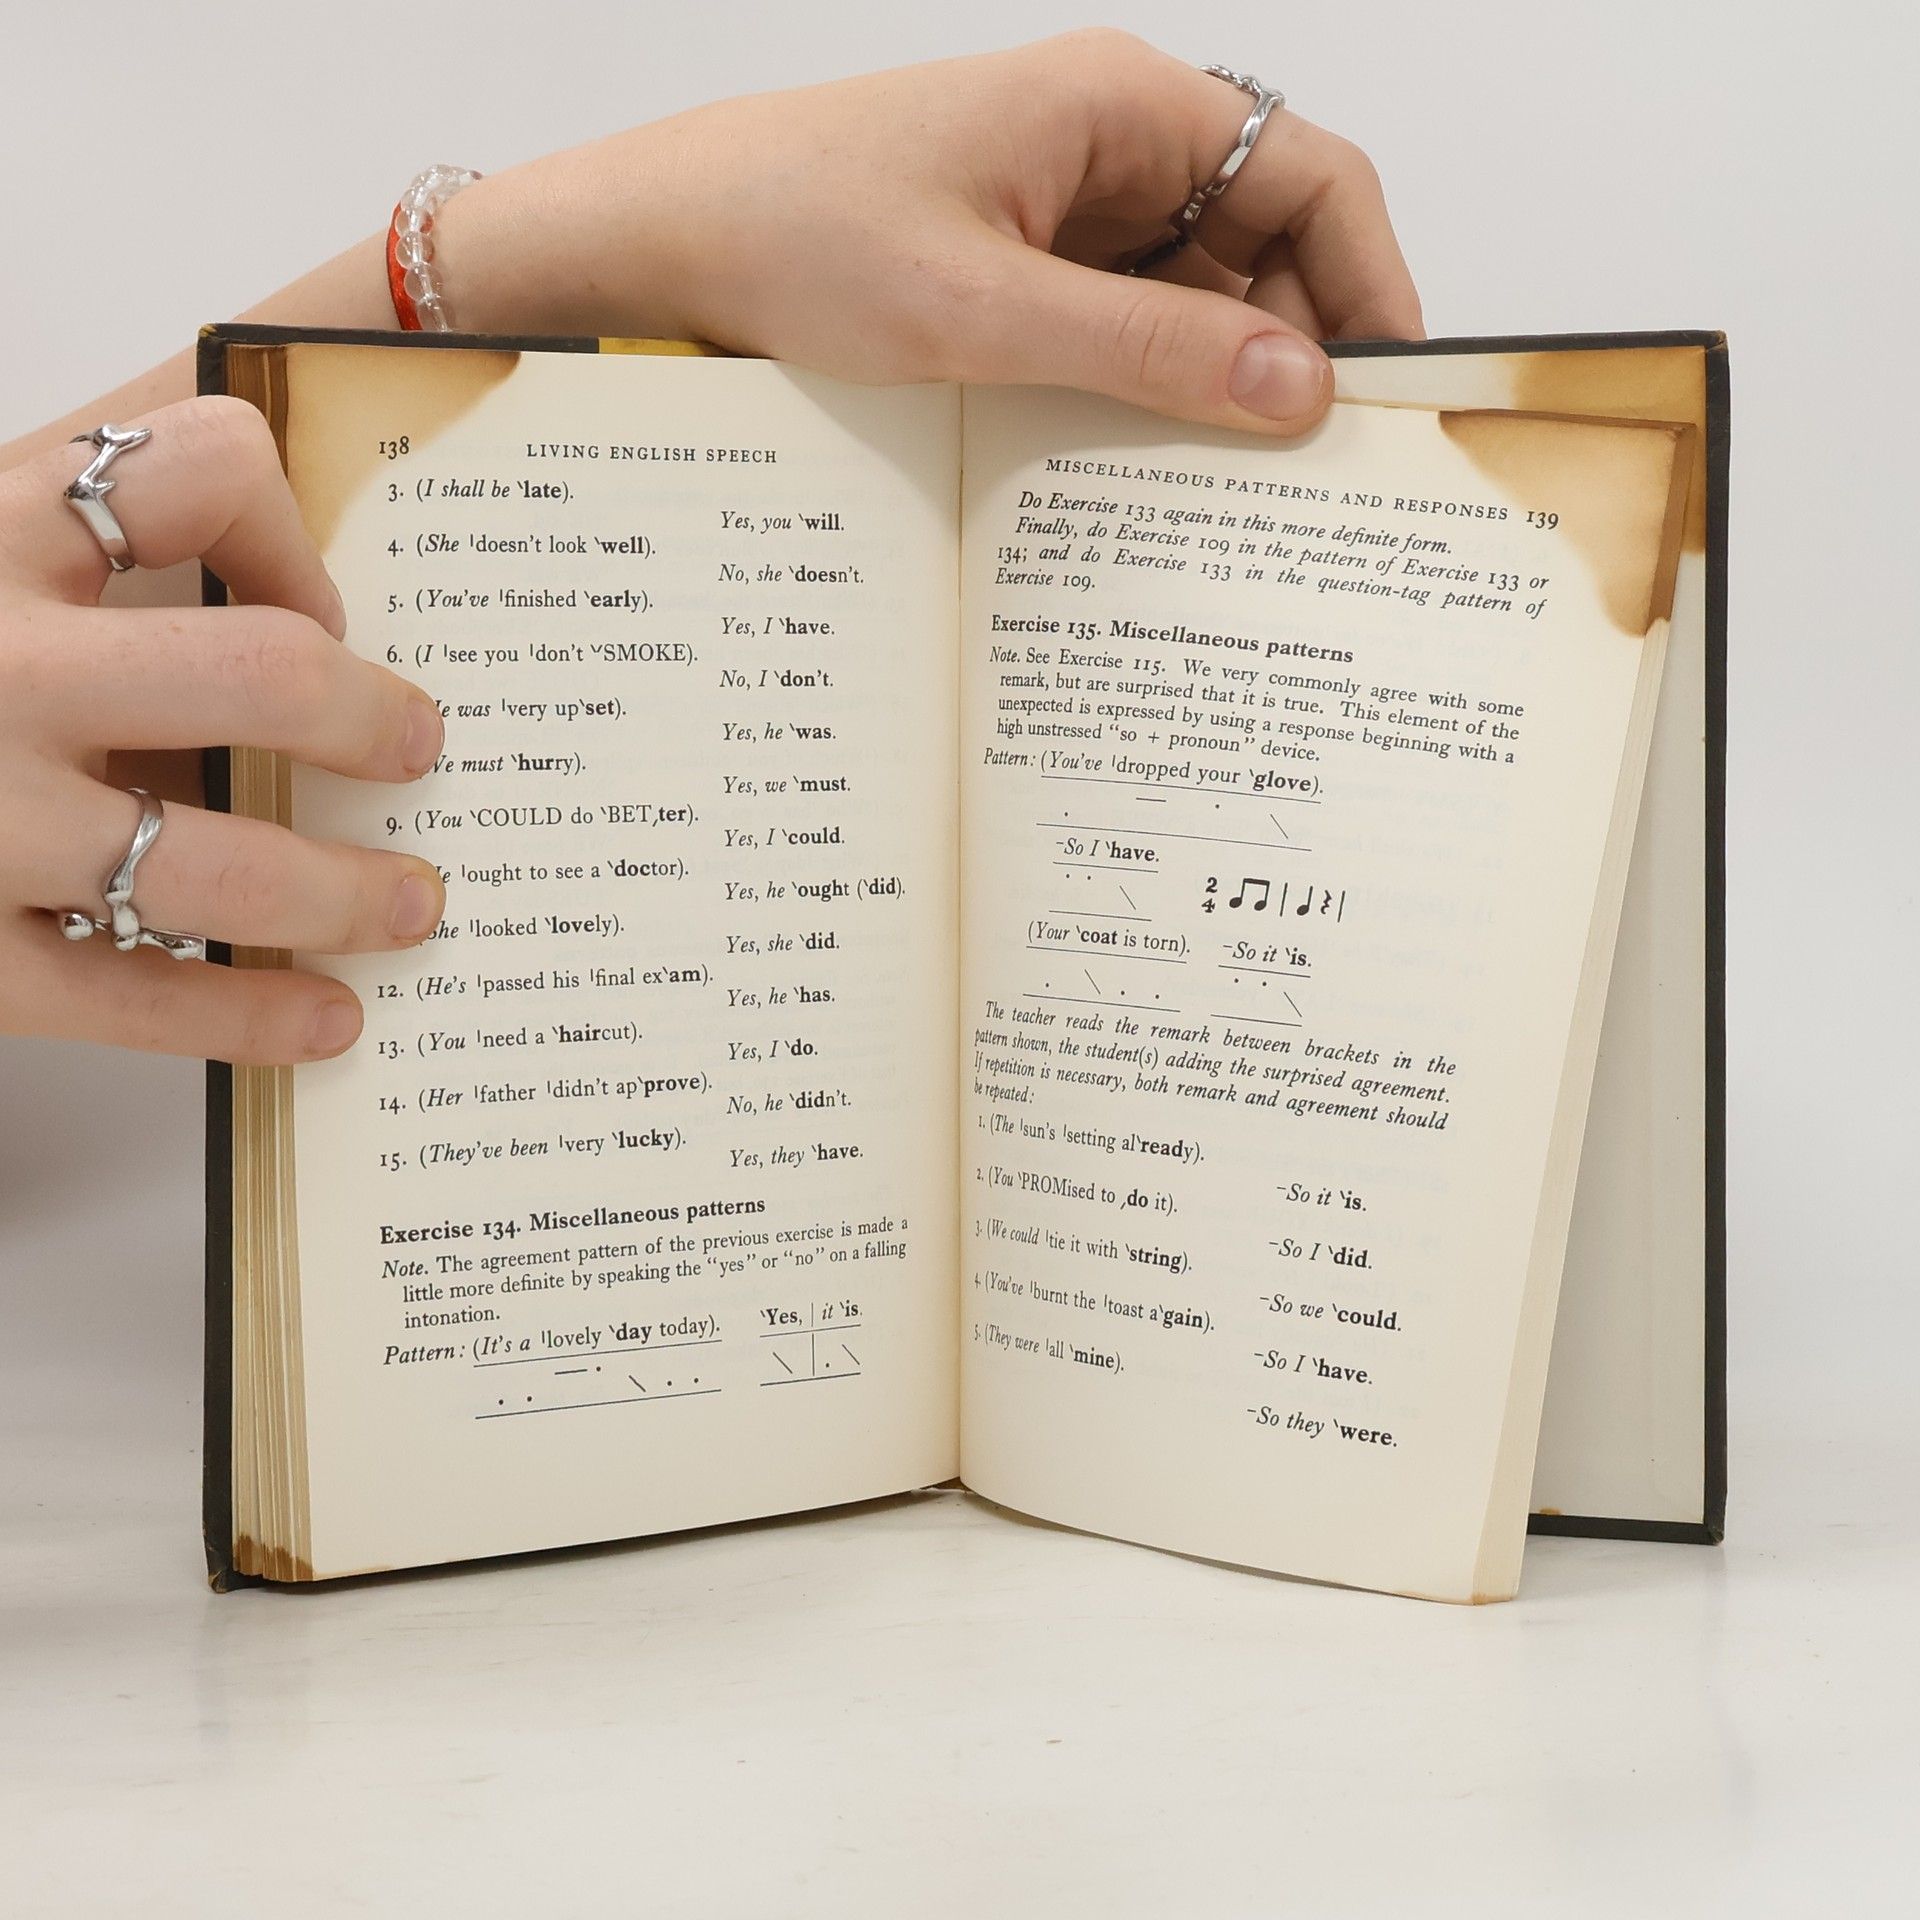 138 LIVING ENGLISH SPEECH
3. (I shall be ˋlate).
Yes, you ˋwill.
4. (She ˈdoesn't look ˋwell).
No, she ˋdoesn't.
5. (You've ˈfinished ˋearly).
Yes, I ˋhave.
6. (I ˈsee you ˈdon't ˇSMOKE).
No, I ˋdon't.
was ˈvery upˋset).
Yes, he ˋwas.
must ˋhurry).
Yes, we ˋmust.
9. (You ˋCOULD do ˋBETˏter).
Yes, I ˋcould.
ˈought to see a ˋdoctor).
Yes, he ˋought (ˋdid).
(She ˈlooked ˋlovely).
Yes, she ˋdid.
12. (He's ˈpassed his ˈfinal exˋam).
Yes, he ˋhas.
13. (You ˈneed a ˋhaircut).
Yes, I ˋdo.
14. (Her ˈfather ˈdidn't apˋprove).
No, he ˋdidn't.
15. (They've been ˈvery ˋlucky).
Yes, they ˋhave.
Exercise 134. Miscellaneous patterns
Note. The agreement pattern of the previous exercise is made a
little more definite by speaking the “yes” or “no” on a falling
intonation.
Pattern: (It's a ˈlovely ˋday today). ˋYes, | it ˋis.
MISCELLANEOUS PATTERNS AND RESPONSES 139
Do Exercise 133 again in this more definite form.
Finally, do Exercise 109 in the pattern of Exercise 133 or
134; and do Exercise 133 in the question-tag pattern of
Exercise 109.
Exercise 135. Miscellaneous patterns
Note. See Exercise 115. We very commonly agree with some
remark, but are surprised that it is true. This element of the
unexpected is expressed by using a response beginning with a
high unstressed “so + pronoun” device.
Pattern: (You've ˈdropped your ˋglove).
¯So I ˋhave.
2
4
(Your ˋcoat is torn). ¯So it ˋis.
The teacher reads the remark between brackets in the
pattern shown, the student(s) adding the surprised agreement.
If repetition is necessary, both remark and agreement should
be repeated:
1. (The ˈsun's ˈsetting alˋready).
¯So it ˋis.
2. (You ˋPROMised to ˏdo it).
¯So I ˋdid.
3. (We could ˈtie it with ˋstring).
¯So we ˋcould.
4. (You've ˈburnt the ˈtoast aˋgain).
¯So I ˋhave.
5. (They were ˈall ˋmine).
¯So they ˋwere.